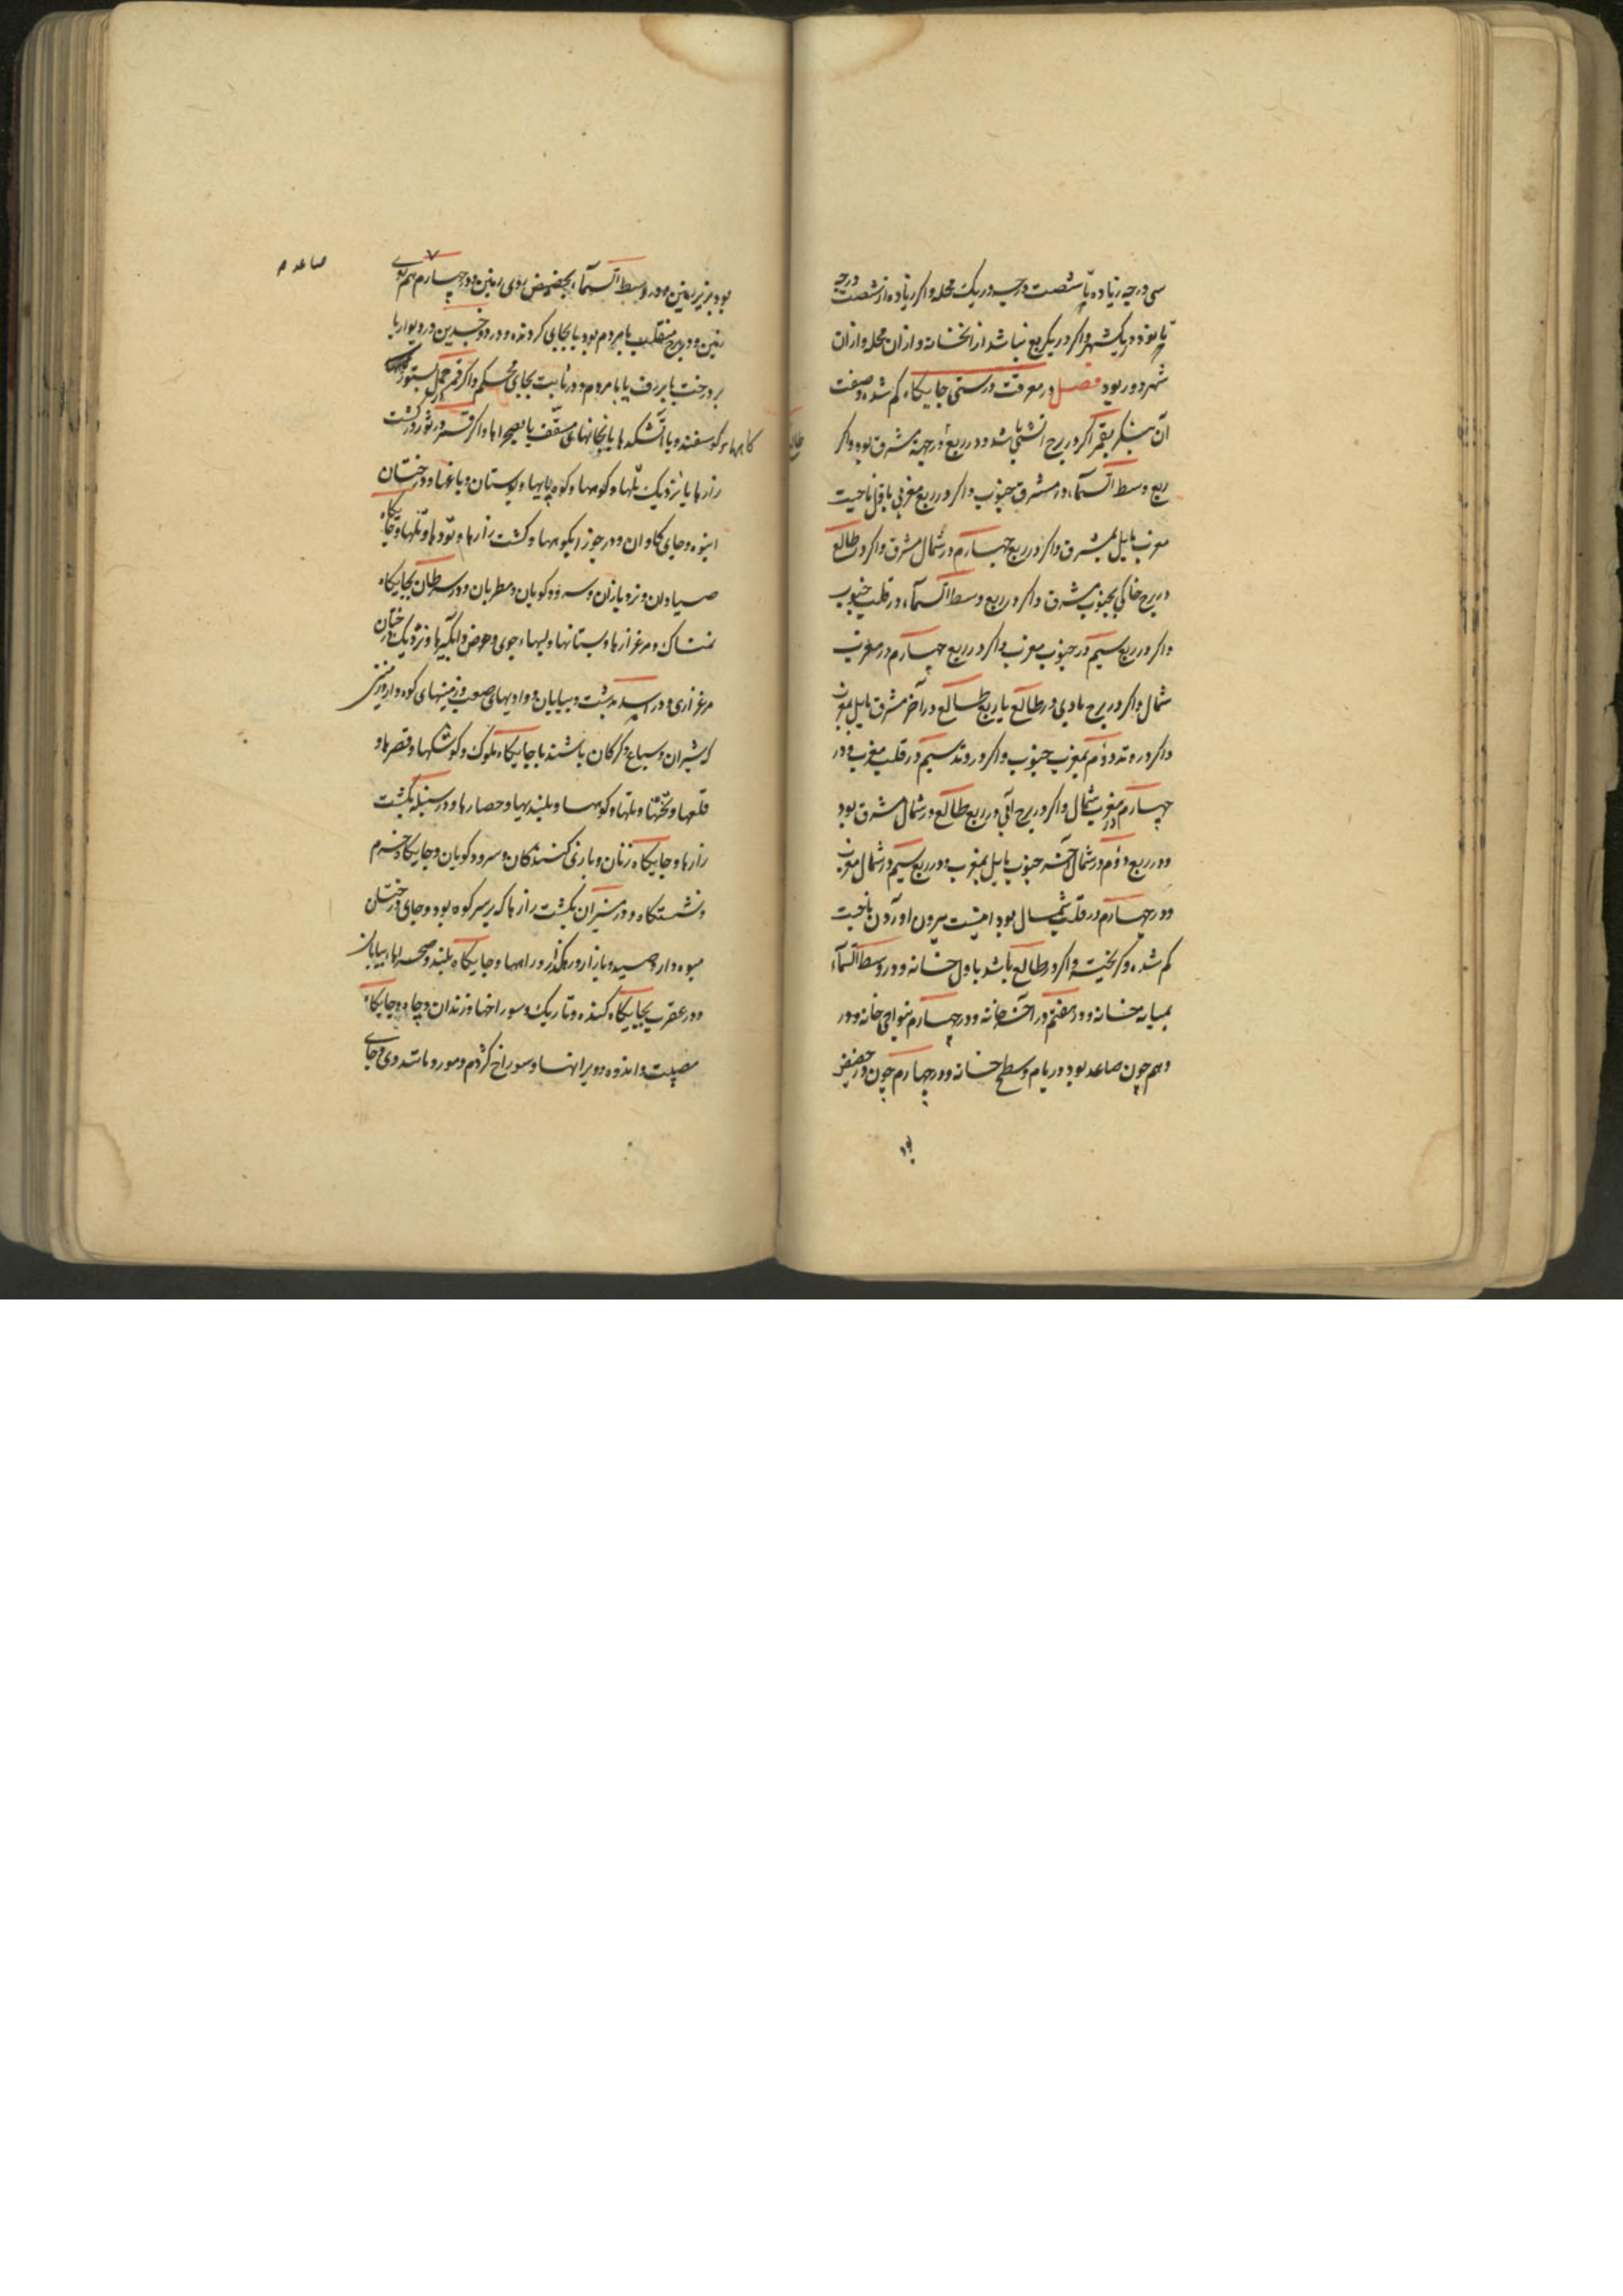 سی درجه زیاده تا شصت درجه در یک محله و اکر زیاده از شصت درجه
تا نود در یک شهر و اکر در یکربع نباشد از انخانه و از ان محله و از ان
شهر دور بود فصل در معرفت درستی جایکاه کم شده و صفت
آن بنکر بقمر اکر در برج اتشی باشد و در ربع طالع در جهة مشرق بود و اکر
ربع وسط السمآء در مشرق جنوب و اکر در ربع مغربی باول ناحیت
مغرب مایل بمشرق و اکر در ربع چهارم در شمال مشرق و اکر در طالع
در برج خاکی بجنوب مشرق و اکر در ربع وسط السمآء در قلب جنوب
و اکر در ربع سیم در جنوب مغرب و اکر در ربع چهارم در مغرب
شمال و اکر در برج بادی در طالع یا ربع طالع در آخر مشرق مایل بمغرب
و اکر در وتد دوم بمغرب جنوب و اکر در وتد سیم در قلب مغرب و در
چهارم در مغرب شمال و اکر در برج آبی در ربع طالع در شمال مشرق بود
و در ربع دوم در شمال آخر جنوب مایل بمغرب و در ربع سیم در شمال مغرب
و در چهارم در قلب شمال بود اینست بیرون اوردن ناحیت
کم شده و کریخته و اکر در طالع باشد باول خانه و در وسط السمآء
بمیانه خانه و در هفتم در آخر خانه و در چهارم بنواحی خانه و در
وهم چون صاعد بود در بام و سطح خانه و در چهارم چون در حضیض
بود
بود بزیر زمین و در وسط السمآء بحضیض روی زمین و در چهارم هم توی
زمین و در برج منقلب با مردم بود یا بجای کردنده و در ذو جسدین در دیوار یا
بر درخت یا بر رف یا با مردم و در ثابت بجای محکم و اکر قمر در حمل بستور
کاهها و کوسفند و یا آتشکدها یا بخانهای مسقف یا بصحراها و اکر قمر در ثور در کشت
زارها یا نزدیک تلها و کوهها و کوه پایها و بوستان و باغها و درختان
انبوه و جای کاوان و در جوزا بکوهها و کشت زارها و تودها و تلها و جایکاه
صیادان و نرد بازان و سرود کویان و مطربان و در سرطان بجایکاه
نمناک و مرغزارها و بستانها و لبهاء جوی و حوض و ابکیرها و نزدیک درختان
مرغزاری و در اسد بدشت و بیابان و وادیهای صعب و زمینهای کوه
که شیران و سباع و کرکان باشند یا جایکاه ملوک و کوشکها و قصرها و
قلعها و تختها و تلها و کوهها و بلندیها و حصارها و در سنبله بکشت
زارها و جایکاه زنان و بازی کنندکان و سرود کویان و جایکاه خرم
و نشستکاه و در میزان بکشت زارها که بر سر کوه بود و جای درختان
میوه دار و صید و بازار و رهکذار و راهها و جایکاه بلند و صحراها و بیابان
و در عقرب بجایکاه کنده و تاریک و سوراخها و زندان و چاه و جایکاه
مصیبت و اندوه و ویرانها و سوراخ کژدم و مور و مانند وی و جای
صاعد م